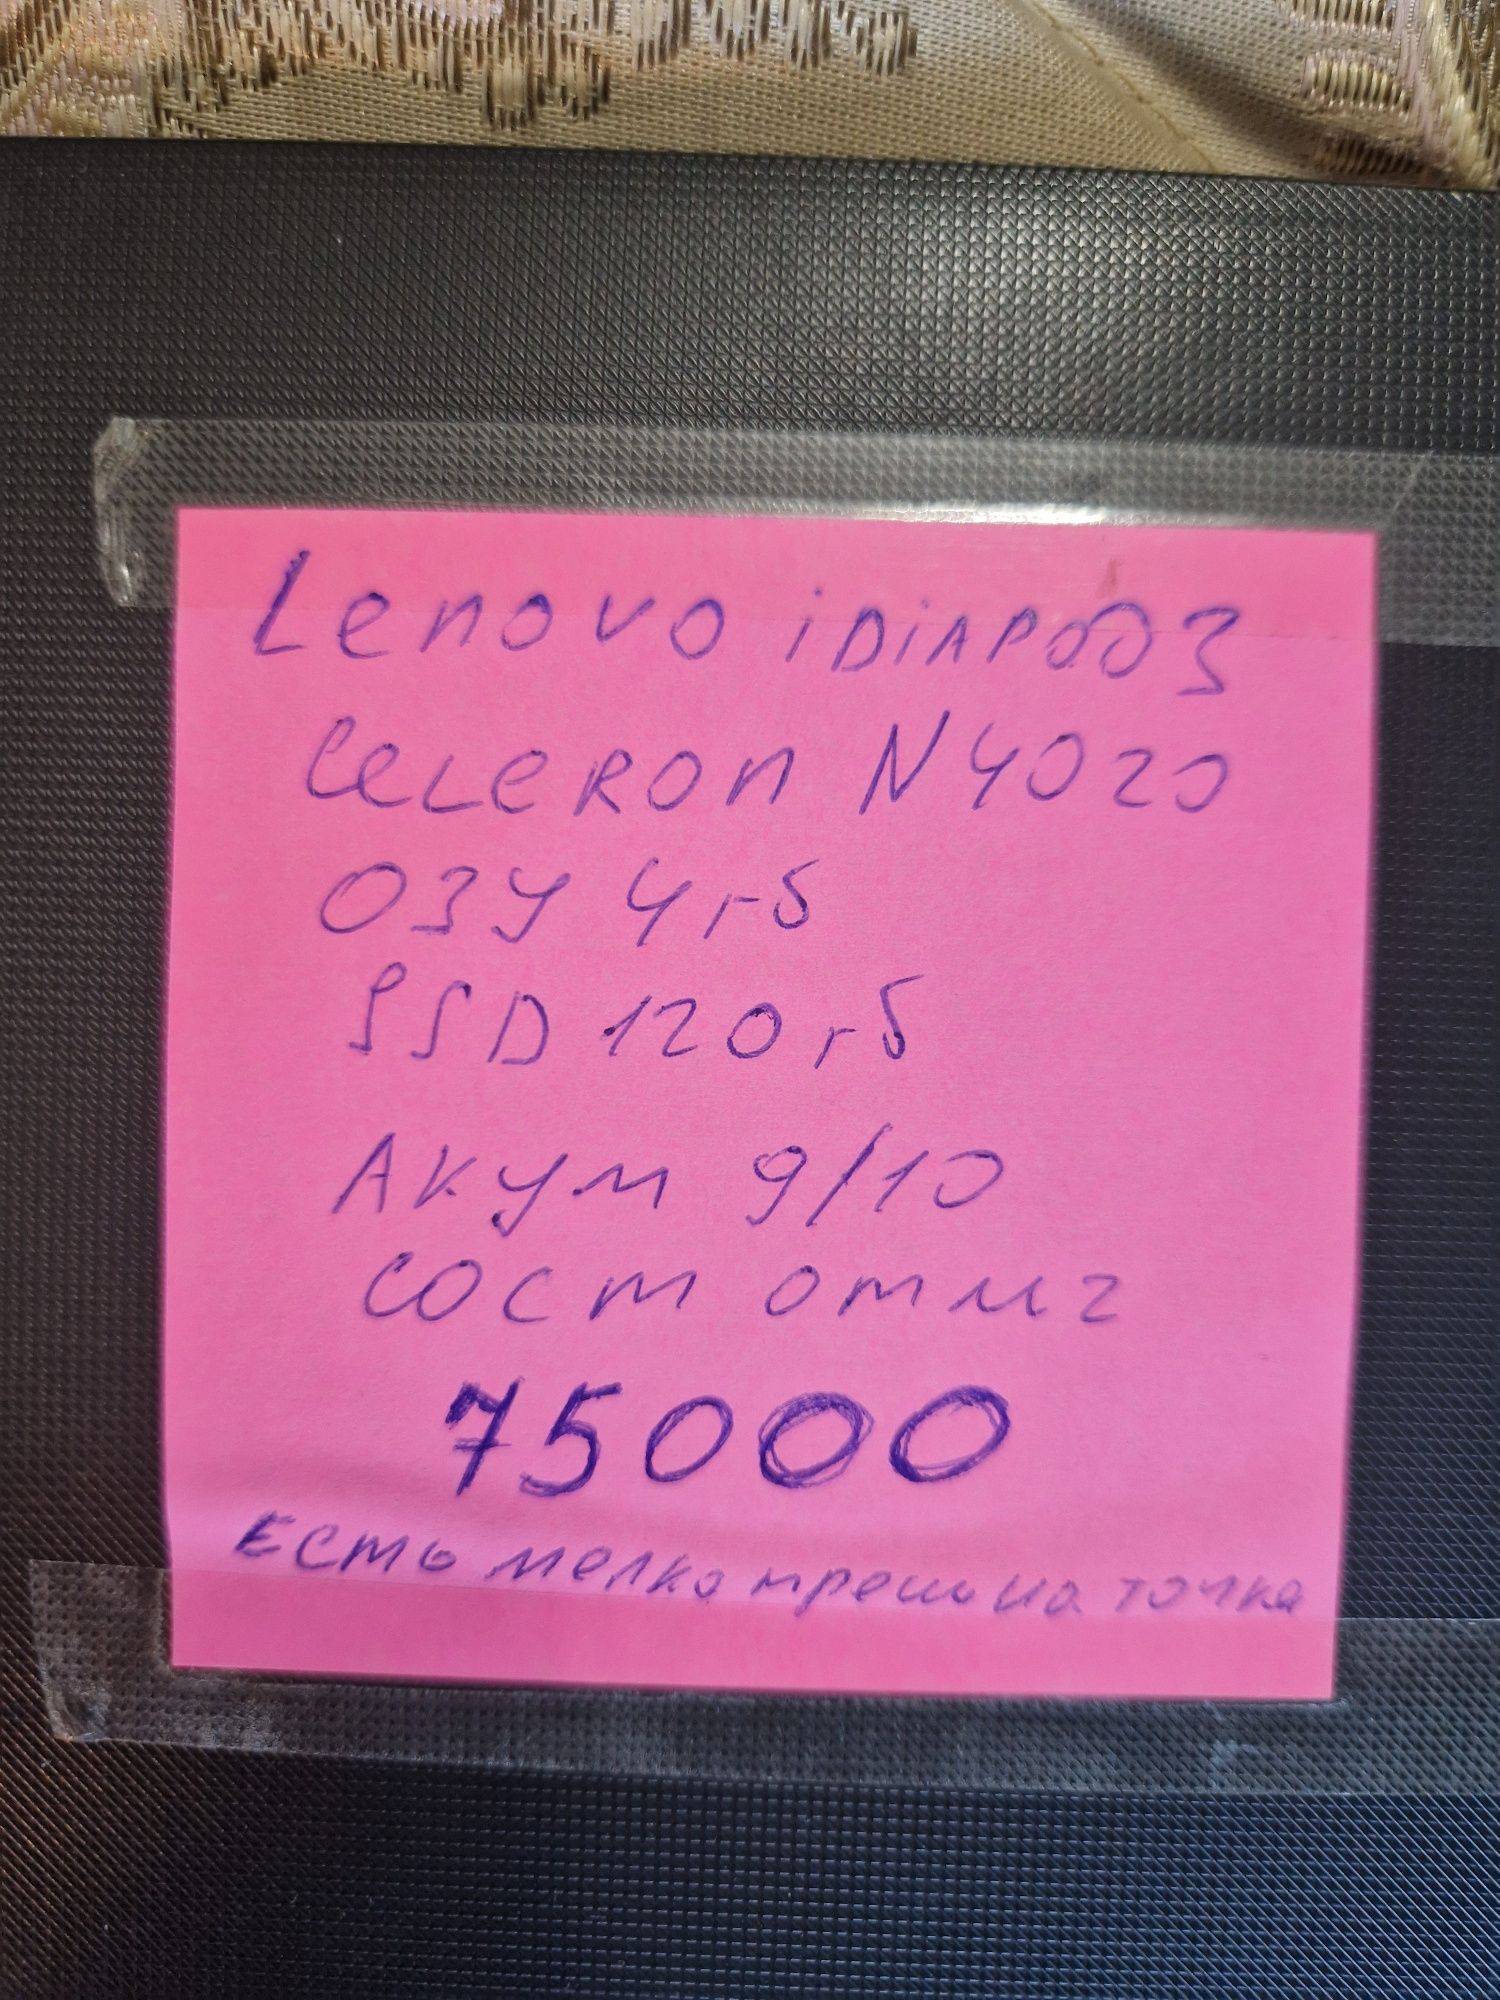 Lenovo iDiAPOD3
CeLeRon N4020
ОЗУ 4 гб
SSD 120 гб
Акум 9/10
Сост отмг
75000
Есть мелко точка